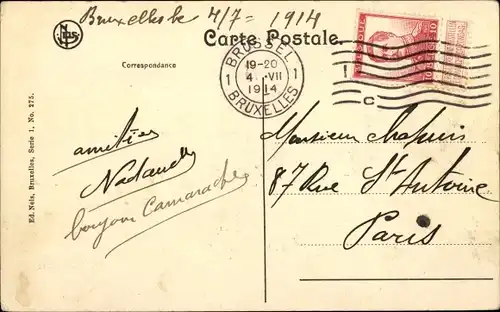 Bruxelles le 4/7 = 1914
Nels
Carte Postale.
Correspondance
BRUSSEL
19-20
1 4 VII 1
1914
BRUXELLES
C
10 10
Ed. Nels, Bruxelles, Serie 1, No. 275.
amitiés
Nadaud
bonjour Camarades
Monsieur Chapuis
87 Rue St Antoine
Paris